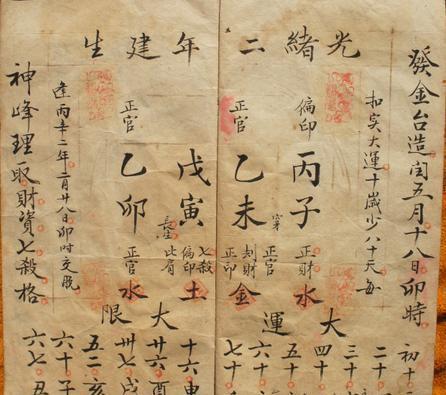 光緒二年建生
發金台造闰五月十八日卯時
扣实大運十歲少八十天每
偏印
丙子
正財
水
正官
乙未
正官
刦財
正印
金
戊寅
長生
七殺
偏印
比肩
土
正官
乙卯
正官
水
大運
初十
二十
三十
四十
五十
六十
七十
大限
十六申
廿六酉
卅七戌
五二亥
六十子
六七丑
逢丙辛二年二月廿八日卯时交脱
神峰理取財資七殺格